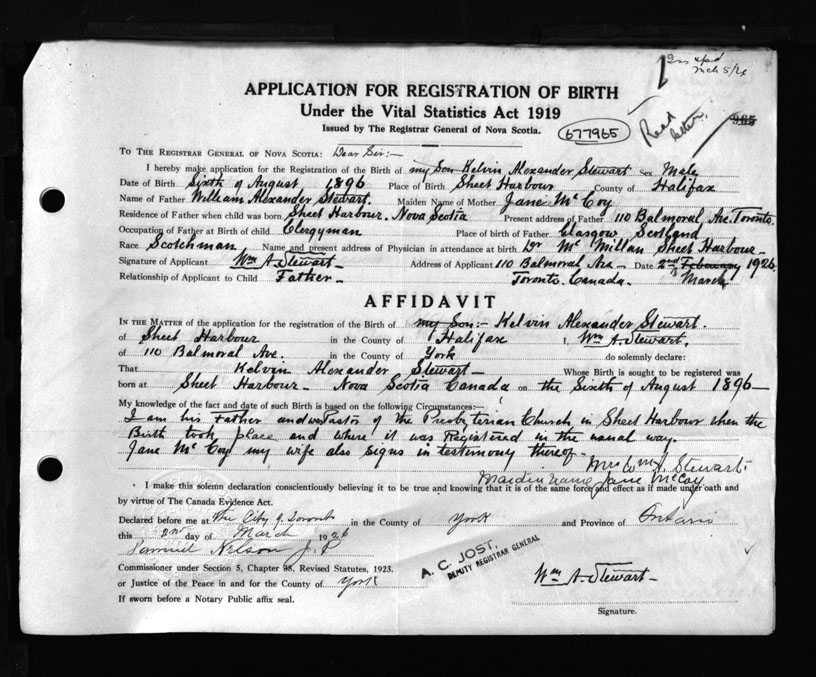 2nd
Mch 5/26
APPLICATION FOR REGISTRATION OF BIRTH
Under the Vital Statistics Act 1919
Issued by The Registrar General of Nova Scotia.
677965
Read letter.
905
TO THE REGISTRAR GENERAL OF NOVA SCOTIA: Dear Sir:—
I hereby make application for the Registration of the Birth of my Son Kelvin Alexander Stewart Sex Male
Date of Birth Sixth of August 1896 Place of Birth Sheet Harbour County of Halifax
Name of Father William Alexander Stewart. Maiden Name of Mother Jane McCoy
Residence of Father when child was born Sheet Harbour. Nova Scotia Present address of Father 110 Balmoral Ave. Toronto.
Occupation of Father at Birth of child Clergyman Place of birth of Father Glasgow Scotland
Race Scotchman Name and present address of Physician in attendance at birth Dr McMillan Sheet Harbour—
Signature of Applicant Wm A. Stewart— Address of Applicant 110 Balmoral Ave— Date 2nd February 1926
Relationship of Applicant to Child Father— Toronto. Canada. March
AFFIDAVIT
IN THE MATTER of the application for the registration of the Birth of my Son:— Kelvin Alexander Stewart.
of Sheet Harbour in the County of Halifax I, Wm A. Stewart.
of 110 Balmoral Ave. in the County of York do solemnly declare:
That Kelvin Alexander Stewart— Whose Birth is sought to be registered was
born at Sheet Harbour— Nova Scotia Canada on the Sixth of August 1896—
My knowledge of the fact and date of such Birth is based on the following Circumstances:—
I am his Father and was Pastor of the Presbyterian Church in Sheet Harbour when the
Birth took place and where it was Registered in the usual way.
Jane McCoy my wife also signs in testimony thereof—
Mrs Wm A. Stewart.
Maiden name Jane McCoy
I make this solemn declaration conscientiously believing it to be true and knowing that it is of the same force and effect as if made under oath and
by virtue of The Canada Evidence Act.
Declared before me at The City of Toronto in the County of York and Province of Ontario
this 2nd day of March 1926
Samuel Nelson J.P.
Commissioner under Section 5, Chapter 38, Revised Statutes, 1923.
or Justice of the Peace in and for the County of York
If sworn before a Notary Public affix seal.
A. C. JOST,
DEPUTY REGISTRAR GENERAL
Wm A. Stewart—
Signature.